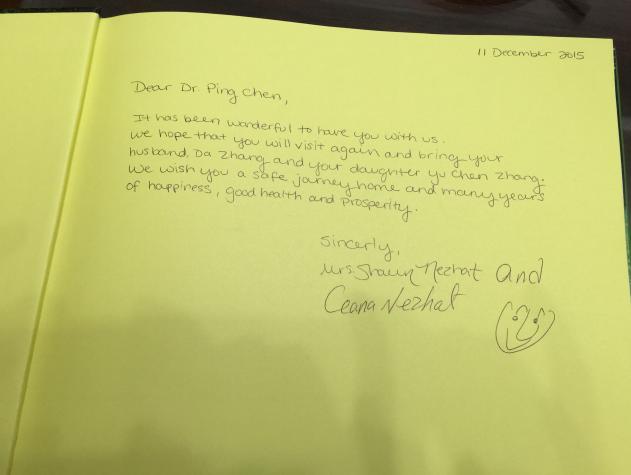 11 December 2015
Dear Dr. Ping Chen,
It has been wonderful to have you with us.
We hope that you will visit again and bring your
husband, Da Zhang and your daughter Yu Chen Zhang.
We wish you a safe journey home and many years
of happiness, good health and prosperity.
Sincerly,
Mrs. Shaun Nezhat and
Ceana Nezhat